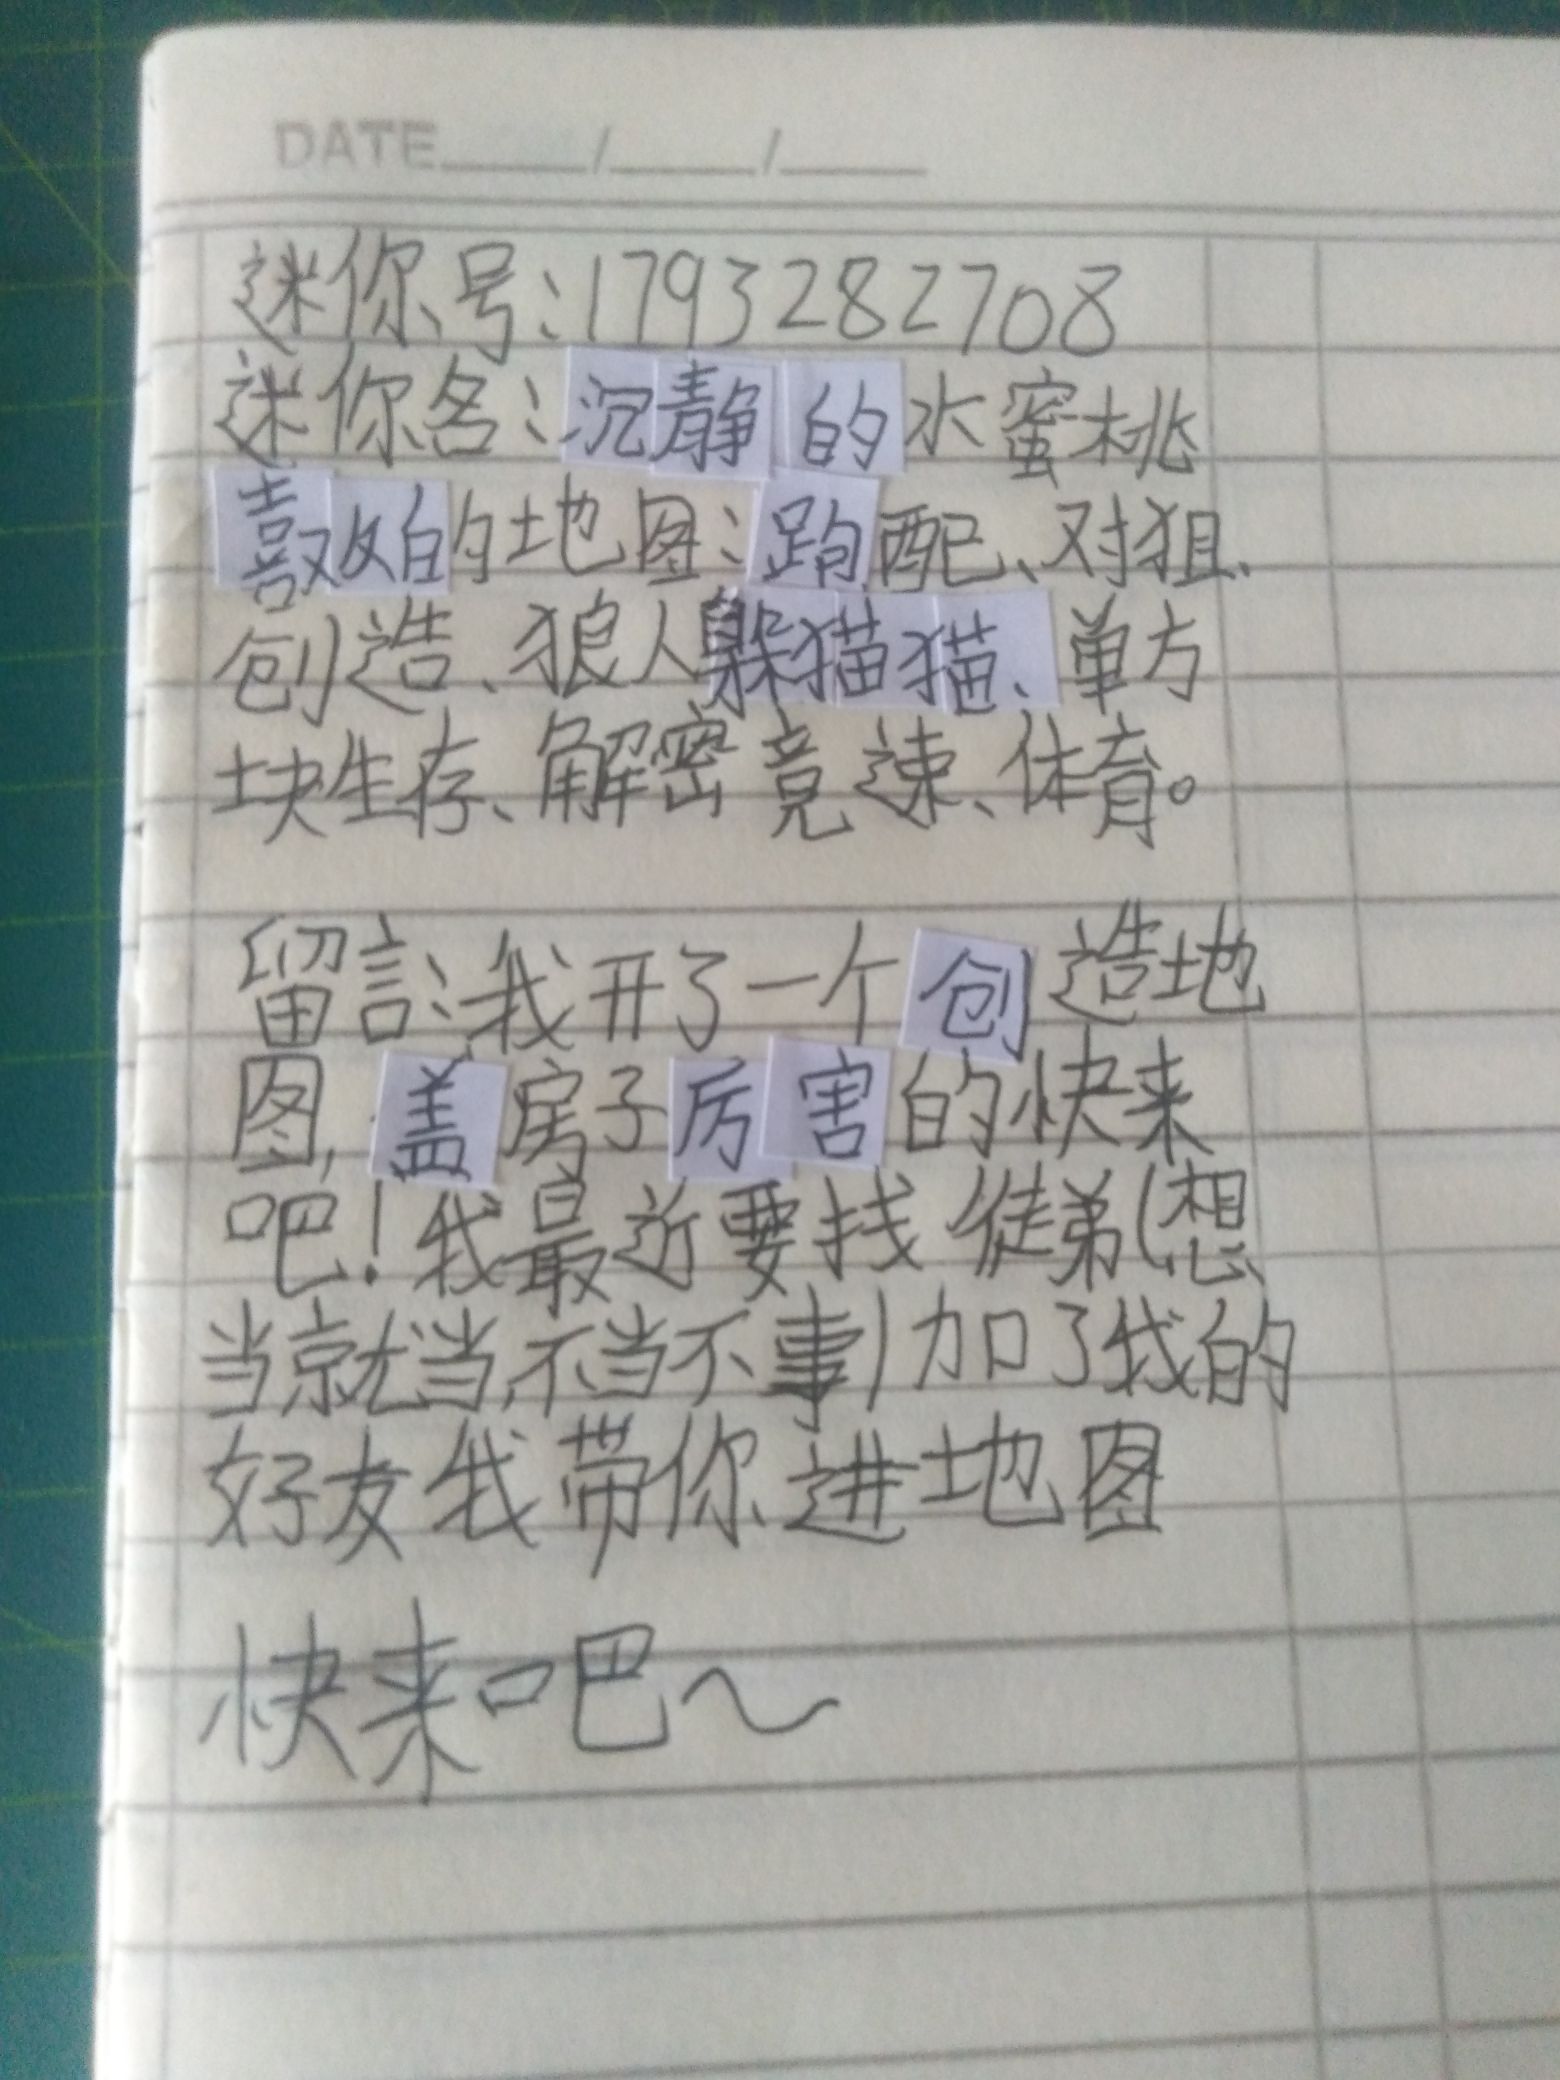 DATE ____/____/____
迷你号:1793282708
迷你名:沉静的水蜜桃
喜欢的地图:跑酷、对狙、
创造、狼人躲猫猫、单方
块生存、解密竞速、体育。
留言:我开了一个创造地
图,盖房子厉害的快来
吧!我最近要找徒弟(想
当就当,不当不事)加了我的
好友我带你进地图
快来吧～